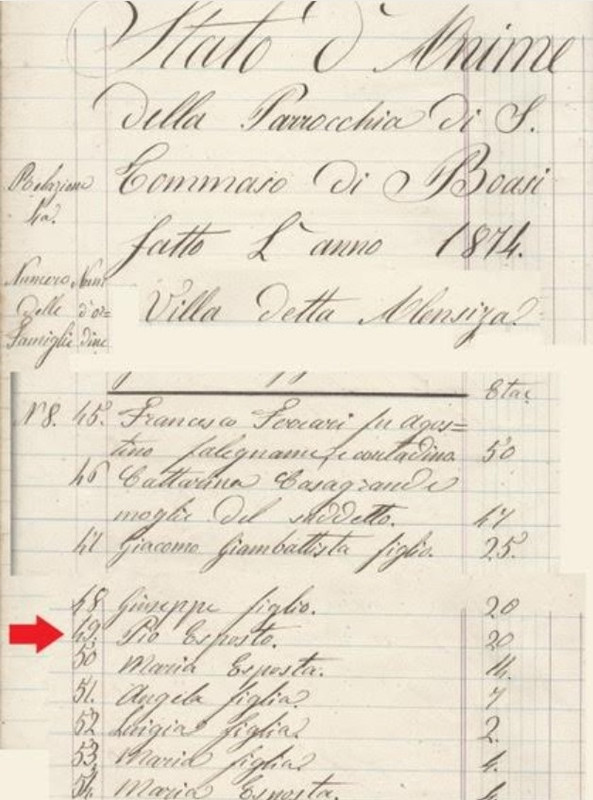 Stato d'Anime
della Parrocchia di S.
Tommaso di Boasi
fatto L'anno 1874.
Numero delle Famiglie
Num d'or=dine
Villa detta
Età
N. 8. 45. Francesco Ferrari fu Agos=
tino falegname e contadino 50
46 Cattarina Casagrande
moglie del suddetto. 47
47 Giacomo Giambattista figlio. 25
48 Giuseppe figlio. 20
49. Pio Esposto. 20
50 Maria Esposta. 14.
51. Angela figlia 7
52 Luigia figlia 2.
53. Maria figlia 4.
54. Maria Esposta. 4